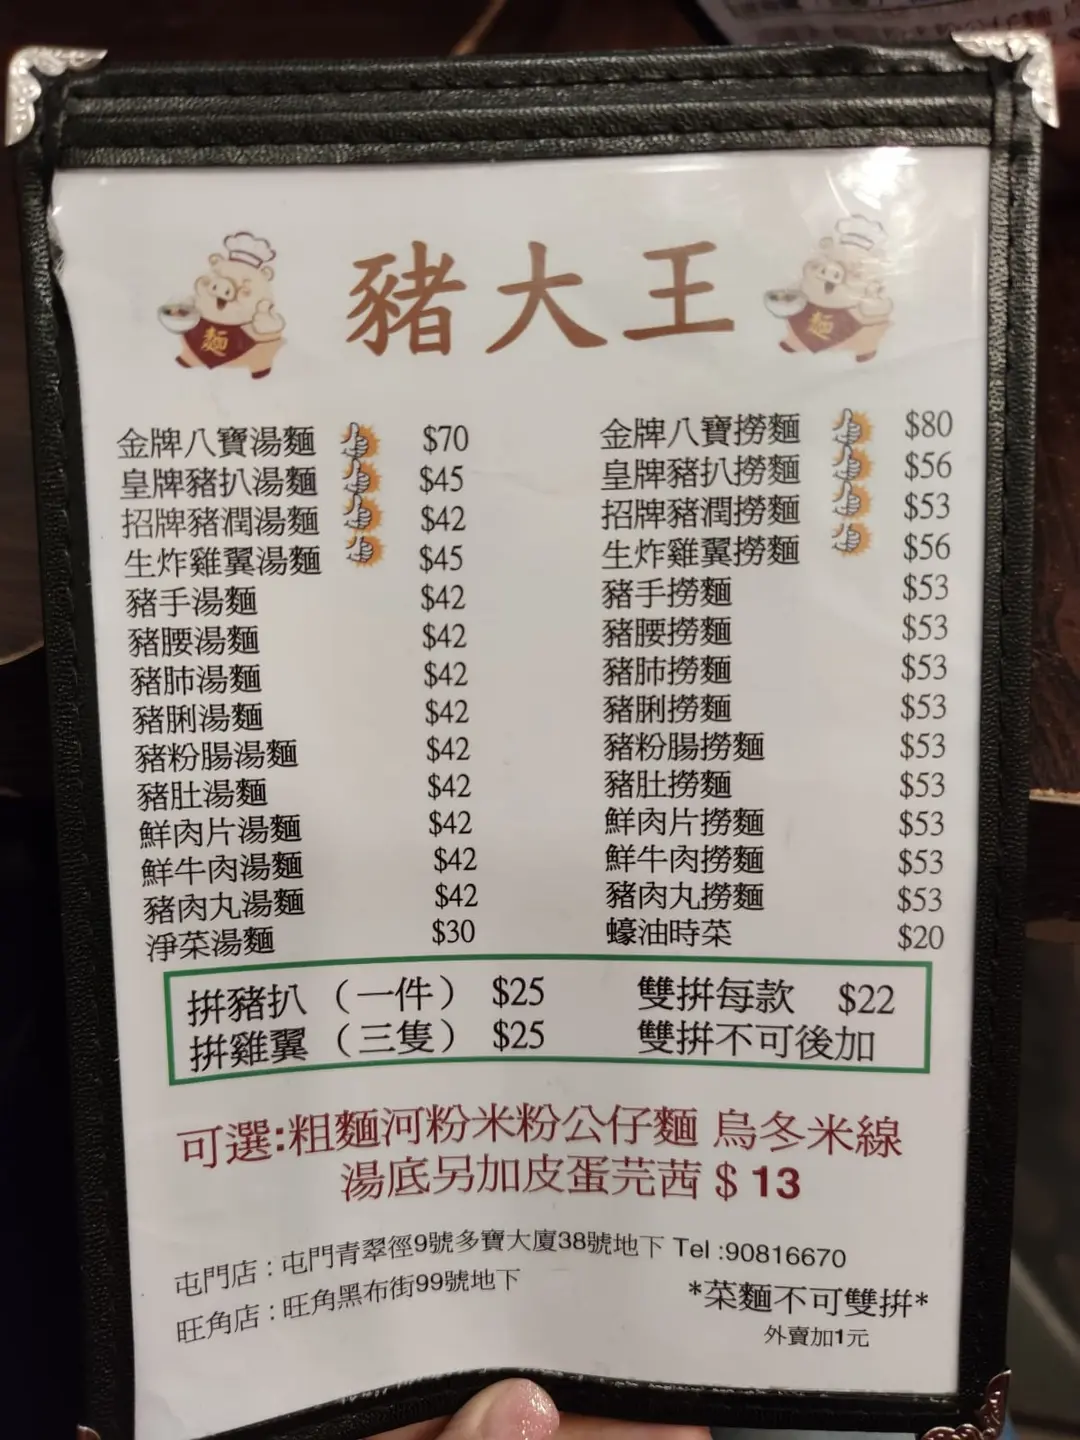 豬大王
麵
麵
金牌八寶湯麵 $70
皇牌豬扒湯麵 $45
招牌豬潤湯麵 $42
生炸雞翼湯麵 $45
豬手湯麵 $42
豬腰湯麵 $42
豬肺湯麵 $42
豬脷湯麵 $42
豬粉腸湯麵 $42
豬肚湯麵 $42
鮮肉片湯麵 $42
鮮牛肉湯麵 $42
豬肉丸湯麵 $42
淨菜湯麵 $30
金牌八寶撈麵 $80
皇牌豬扒撈麵 $56
招牌豬潤撈麵 $53
生炸雞翼撈麵 $56
豬手撈麵 $53
豬腰撈麵 $53
豬肺撈麵 $53
豬脷撈麵 $53
豬粉腸撈麵 $53
豬肚撈麵 $53
鮮肉片撈麵 $53
鮮牛肉撈麵 $53
豬肉丸撈麵 $53
蠔油時菜 $20
拼豬扒（一件） $25
拼雞翼（三隻） $25
雙拼每款 $22
雙拼不可後加
可選:粗麵河粉米粉公仔麵 烏冬米線
湯底另加皮蛋芫茜 $ 13
屯門店 : 屯門青翠徑9號多寶大廈38號地下 Tel :90816670
旺角店 : 旺角黑布街99號地下
*菜麵不可雙拼*
外賣加1元